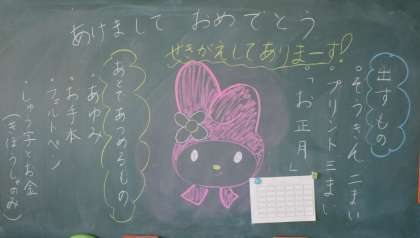 あけまして おめでとう
せきがえしてありまーす!
出すもの
・ぞうきん 二まい
・プリント 三まい
・「お正月」
あとであつめるもの
・あゆみ
・お手本
・フェルトペン
・しゅう字とお金
(きぼうしゃのみ)